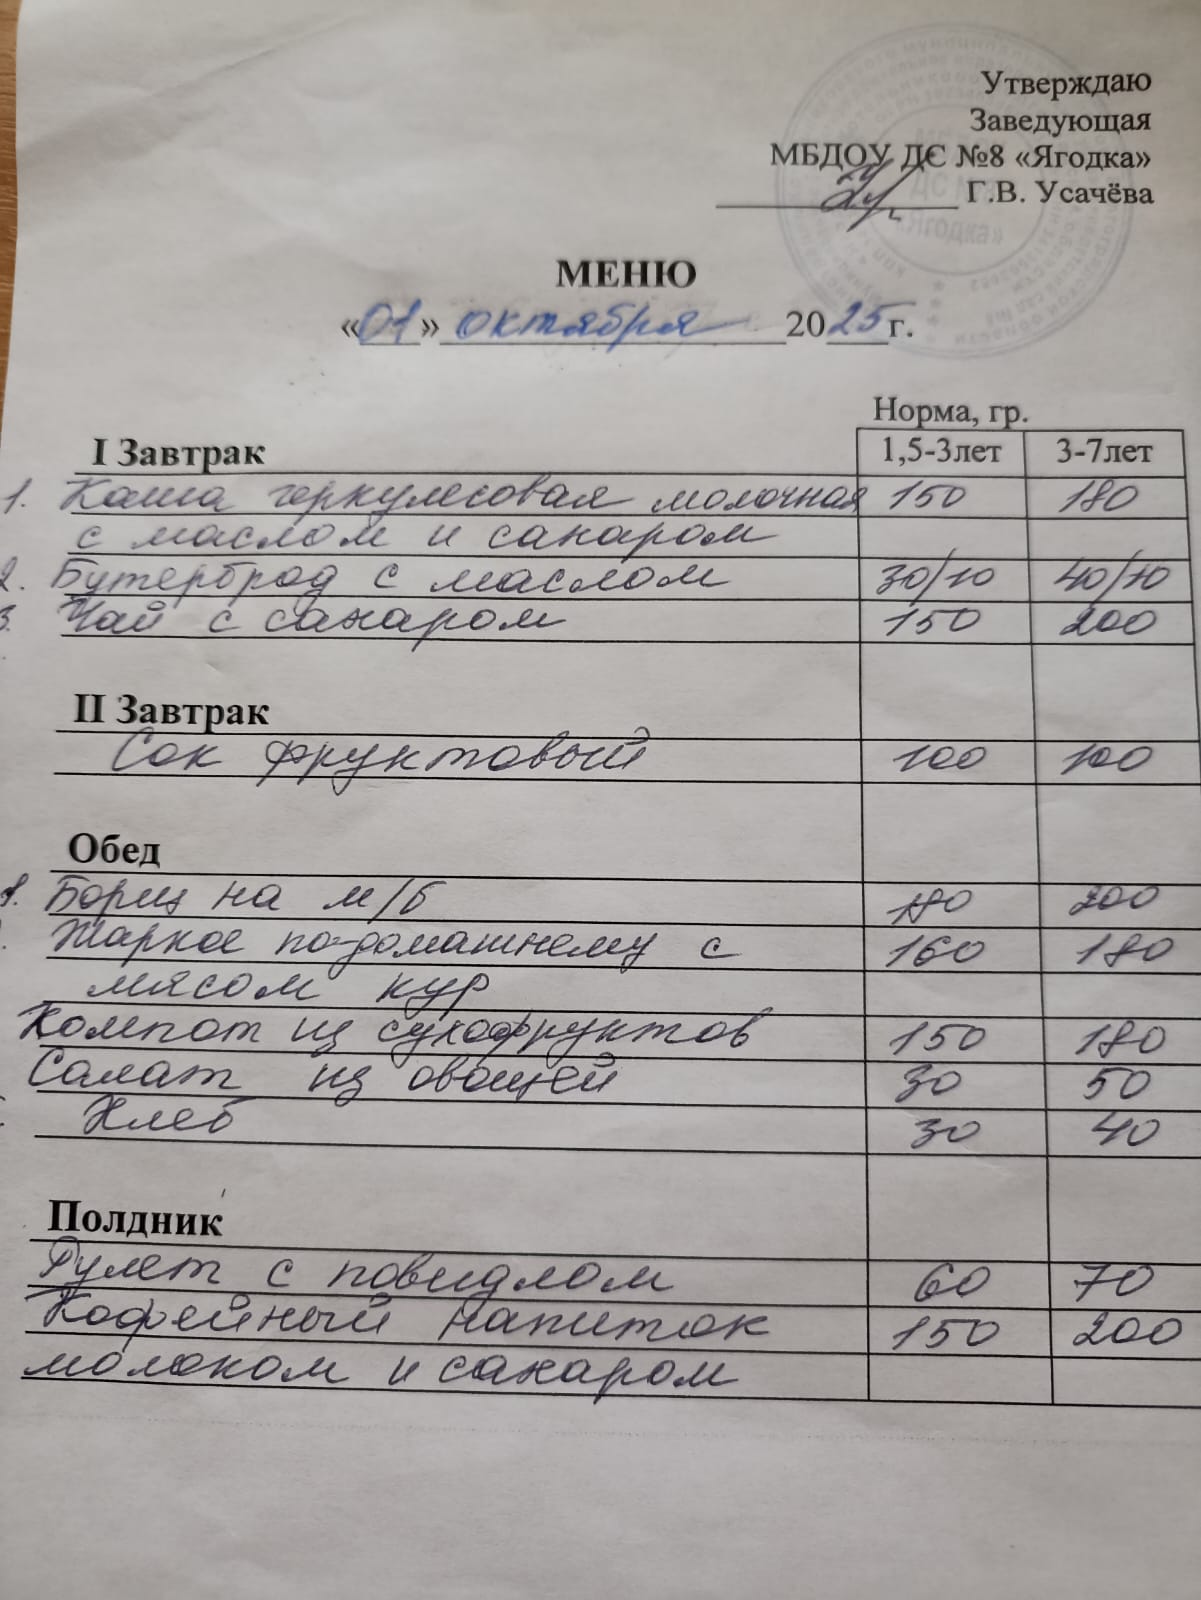 Утверждаю
Заведующая
МБДОУ ДС №8 «Ягодка»
Г.В. Усачёва
ДС №8
«Ягодка»
МЕНЮ
«01» октября 2025 г.
Норма, гр.
I Завтрак 1,5-3лет 3-7лет
1. Каша геркулесовая молочная 150 180
с маслом и сахаром
2. Бутерброд с маслом 30/10 40/10
3. Чай с сахаром 150 200
II Завтрак
Сок фруктовый 100 100
Обед
1. Борщ на м/б 180 200
Жаркое по-домашнему с 160 180
мясом кур
Компот из сухофруктов 150 180
Салат из овощей 30 50
Хлеб 30 40
Полдник
Рулет с повидлом 60 70
Кофейный напиток 150 200
молоком и сахаром